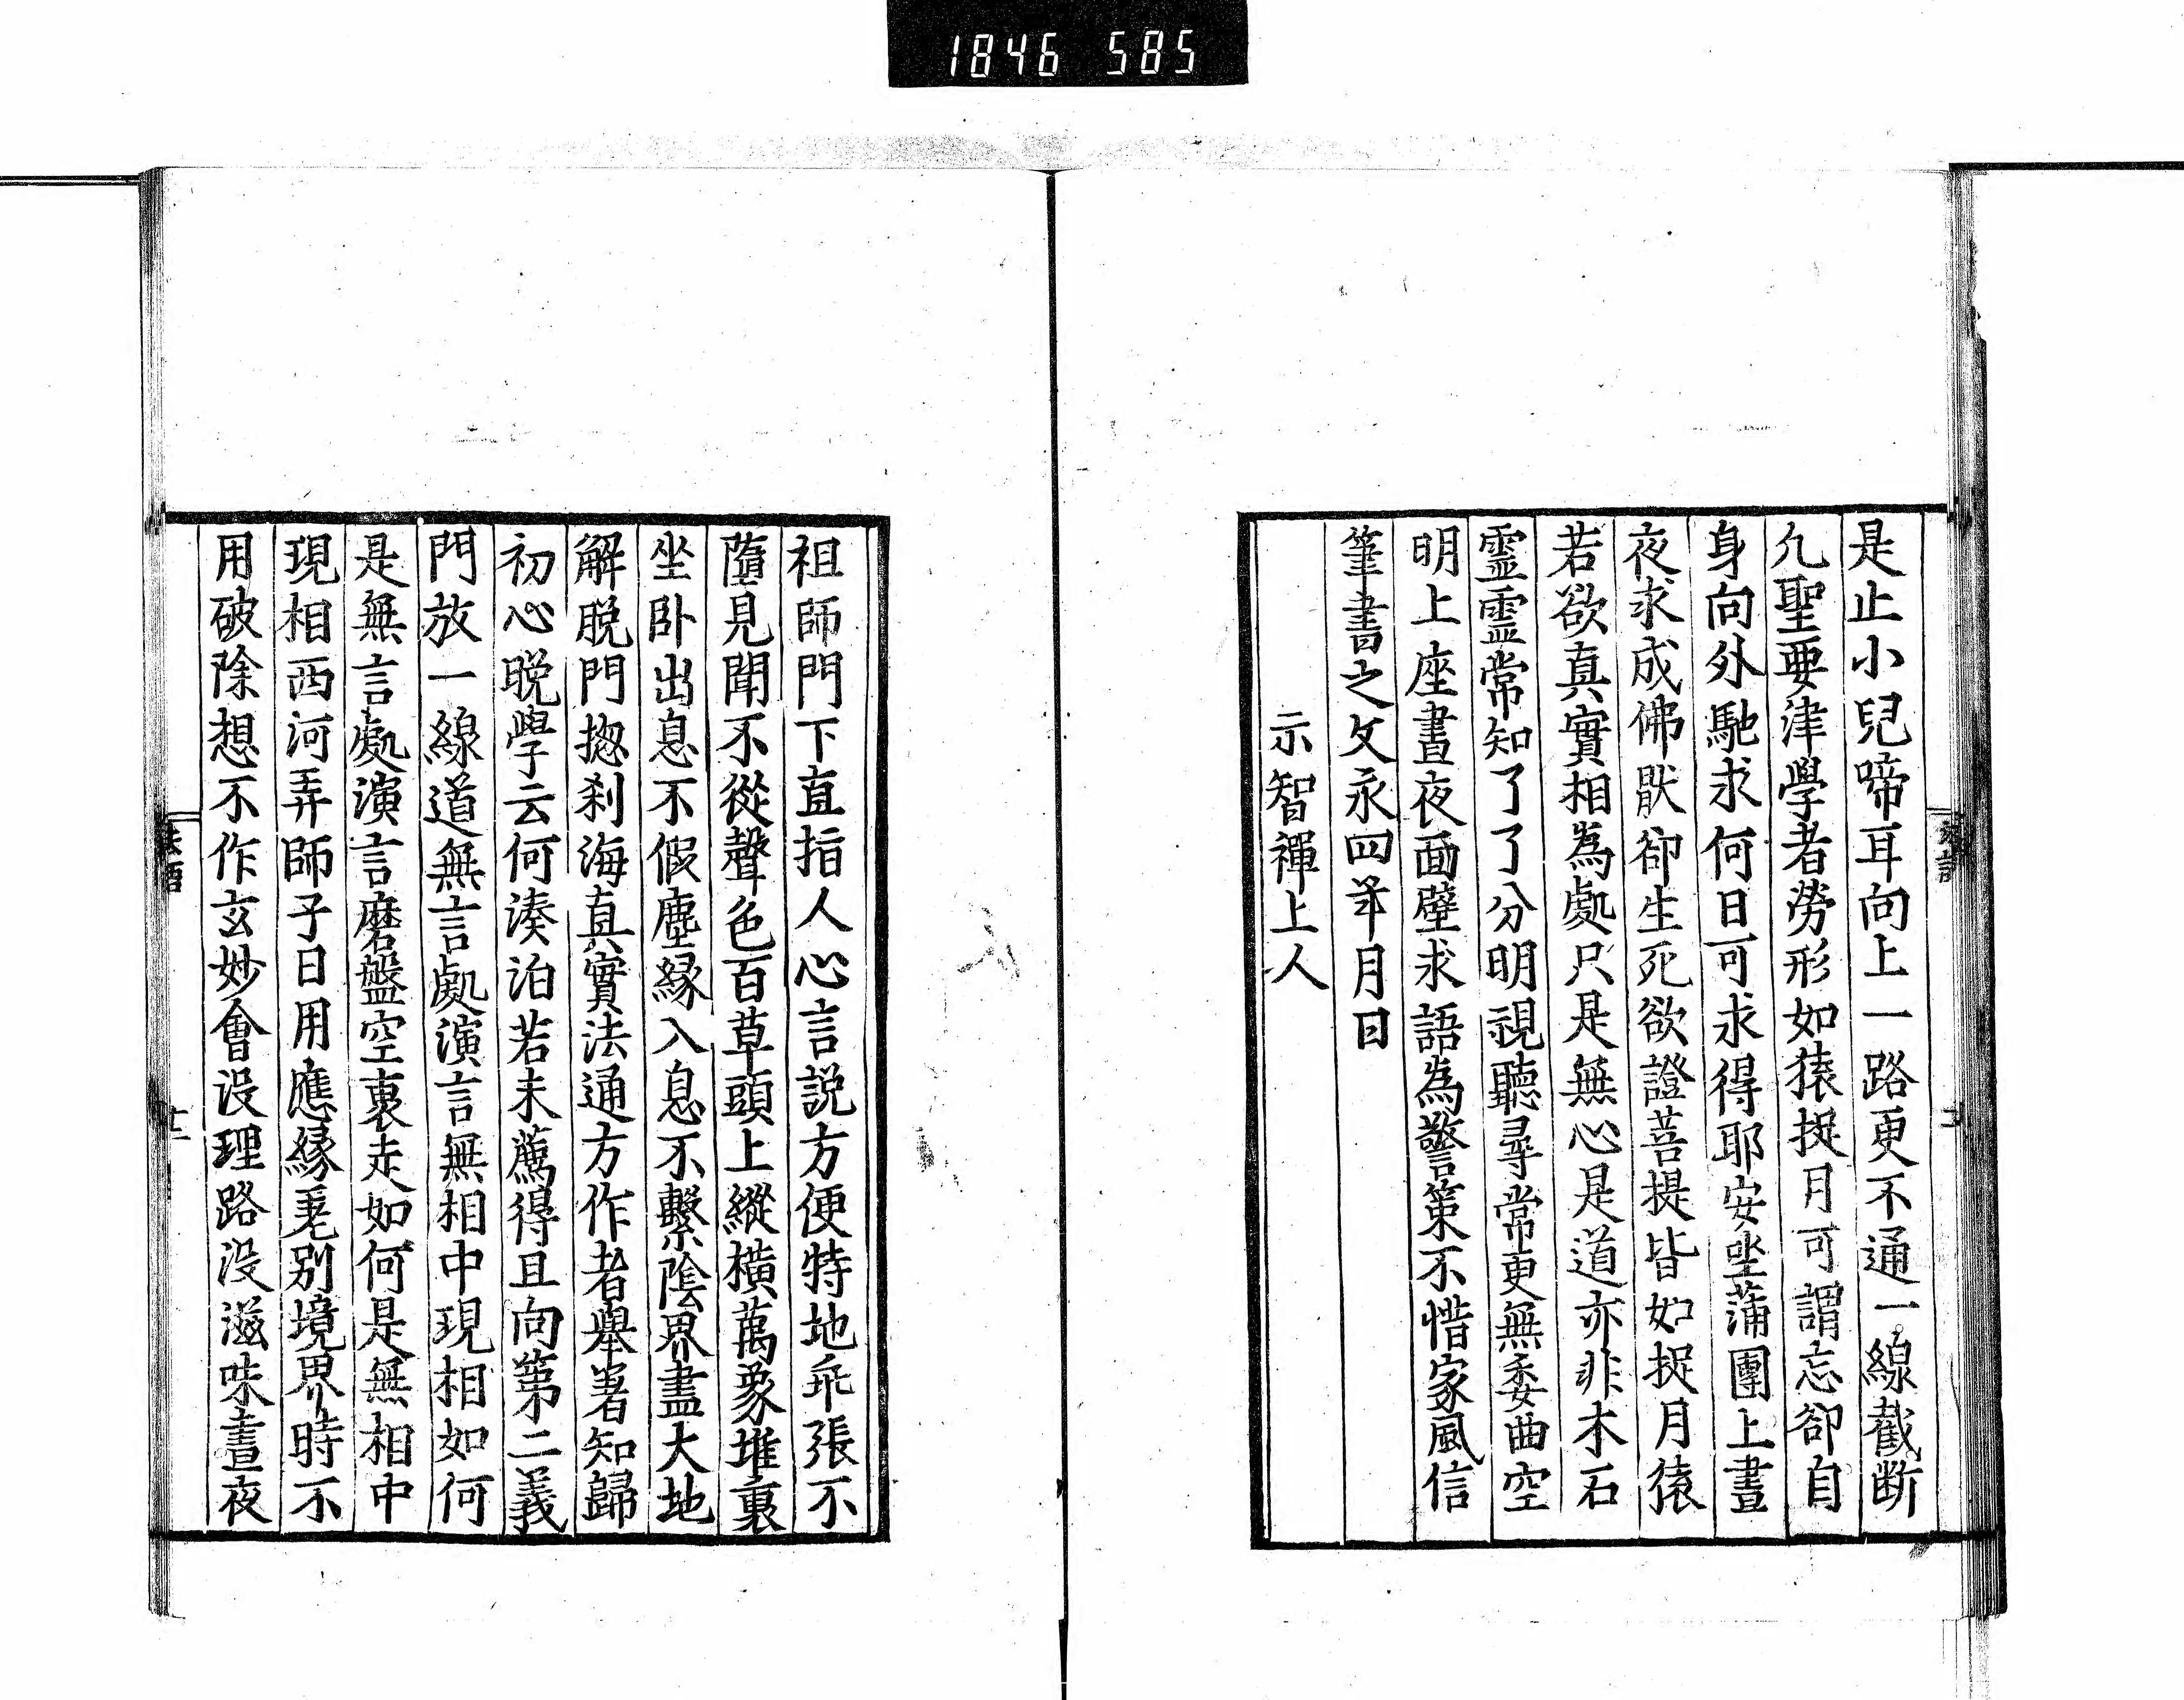 1846 585
是止小兒啼耳向上一路更不通一線截断
凢聖要津學者勞形如猿捉月可謂忘卻自
身向外馳求何日可求得耶安坐蒲團上晝
夜求成佛猒卻生死欲證菩提皆如捉月猿
若欲真實相為處只是無心是道亦非木石
霊霊常知了了分明視聽尋常更無委曲空
明上座晝夜面壁求語為警策不惜家風信
筆書之文永四年月日
示智禪上人
祖師門下直指人心言説方便特地乖張不
墮見聞不從聲色百草頭上縱橫萬象堆裏
坐卧出息不假塵縁入息不繫陰界盡大地
解脱門揔刹海真實法通方作者舉著知歸
初心晩學云何湊泊若未薦得且向第二義
門放一線道無言處演言無相中現相如何
是無言處演言磨盤空裏走如何是無相中
現相西河弄師子日用應縁毫别境界時不
用破除想不作玄妙會没理路没滋味晝夜
法語